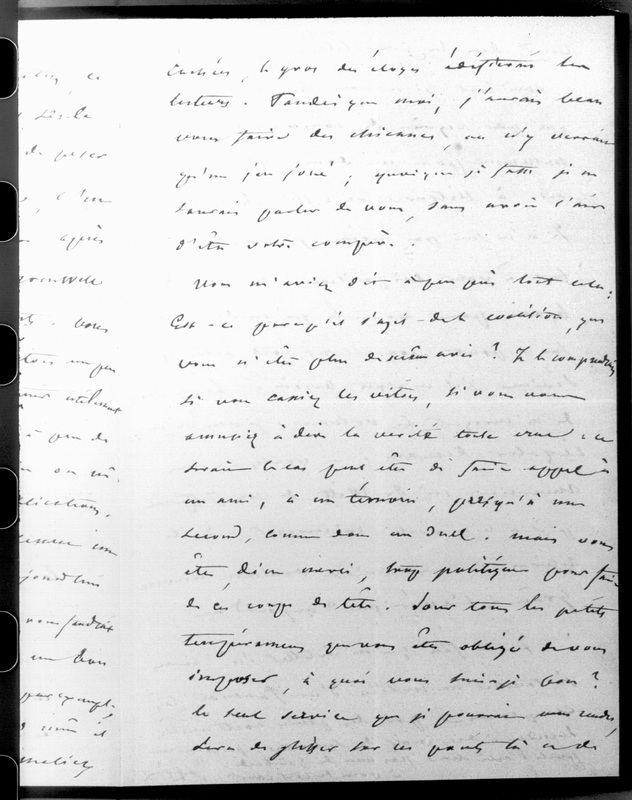 cachées, le gros des éloges édifieront les
lecteurs. Tandis que moi, j'aurais beau
vous faire des chicanes, on n'y verrait
qu'un jeu joué ; quoique je fasse je ne
saurais parler de vous, sans avoir l'air
d'être votre compère.
Vous m'aviez dit à peu près tout cela.
Est-ce parcequ'il s'agit de la coalition, que
vous n'êtes plus du même avis ? Je le comprendrais
si vous cassiez les vitres, si vous vous
amusiez à dire la vérité toute crue : ce
serait le cas peut être de faire appel à
un ami, à un témoin, presqu'à un
second, comme dans un duel. mais vous
êtes, dieu merci, trop politique pour faire
de ces coups de tête. Sous tous les petits
tempéraments que vous êtes obligé de vous
imposer, à quoi vous suis-je bon ?
le seul service que je pourrais vous rendre,
sera de glisser sur ces points là et de
ce
de
après
vous
un peu
utilisant
à peu de
on
vous faudrait
un bon
par exempl.